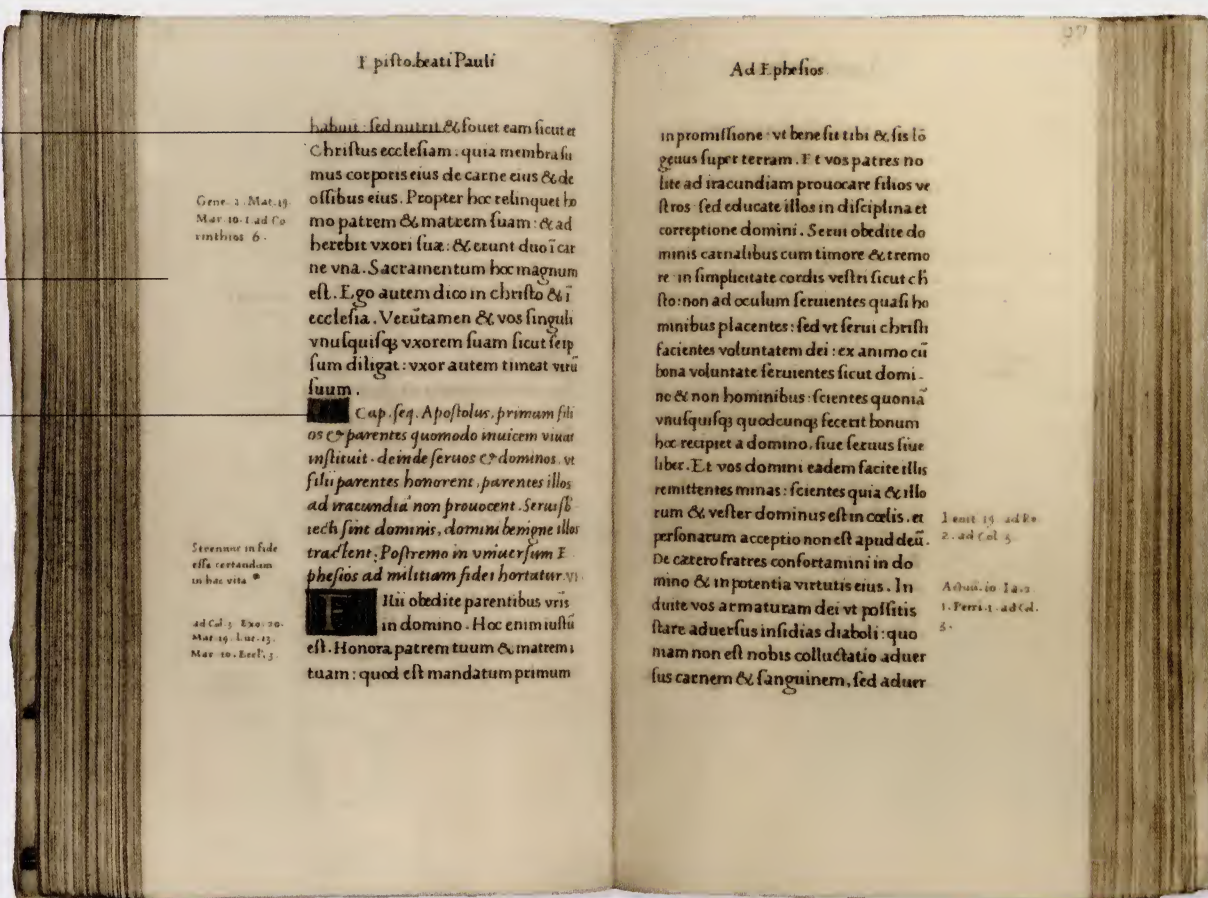 Episto. beati Pauli
habuit : sed nutrit & fouet eam sicut et
Christus ecclesiam . quia membra su
mus corporis eius de carne eius & de
ossibus eius. Propter hoc relinquet ho
mo patrem & matrem suam : & ad
herebit vxori suæ : & erunt duo ī car
ne vna. Sacramentum hoc magnum
est. Ego autem dico in christo & ī
ecclesia . Verūtamen & vos singuli
vnusquisqȝ vxorem suam sicut seip
sum diligat : vxor autem timeat virū
suum .
Gene. 2. Mat. 19.
Mar. 10. 1 ad Co
rinthios 6 .
Cap. seq. Apostolus . primum fili
os & parentes quomodo inuicem viuāt
instituit . deinde seruos & dominos . vt
filii parentes honorent , parentes illos
ad iracundiā non prouocent . Serui sb
iecti sint dominis, domini benigne illos
tractent : Postremo in vniuersum E
phesios ad militiam fidei hortatur . vi .
Strenuue in fide
esse certandum
in hac vita
Filii obedite parentibus vris
in domino . Hoc enim iustū
est . Honora patrem tuum & matrem
tuam : quod est mandatum primum
ad Col. 3. Exo. 20.
Mat. 19. Luc. 13.
Mar. 10. Eccl'. 3.
Ad Ephesios
97
in promissione : vt bene sit tibi & sis lō
geuus super terram . Et vos patres no
lite ad iracundiam prouocare filios ve
stros sed educate illos in disciplina et
correptione domini . Serui obedite do
minis carnalibus cum timore & tremo
re in simplicitate cordis vestri sicut ch̄
sto : non ad oculum seruientes quasi ho
minibus placentes : sed vt serui christi
facientes voluntatem dei : ex animo cū
bona voluntate seruientes sicut domi-
no & non hominibus : scientes quoniā
vnusquisqȝ quodcunqȝ fecerit bonum
hoc recipiet a domino, siue seruus siue
liber. Et vos domini eadem facite illis
remittentes minas : scientes quia & illo
rum & vester dominus est in cœlis . et
personarum acceptio non est apud deū .
De cætero fratres confortamini in do
mino & in potentia virtutis eius . In
duite vos armaturam dei vt possitis
stare aduersus insidias diaboli : quo
niam non est nobis colluctatio aduer
sus carnem & sanguinem, sed aduer
19 ad Ro.
2. ad Col. 3.
10 Ia. 2
1. Petri. 1. ad Col.
3 .